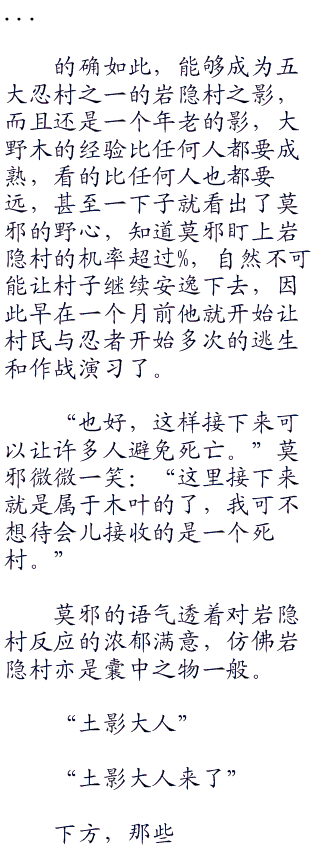 ...
的确如此，能够成为五
大忍村之一的岩隐村之影，
而且还是一个年老的影，大
野木的经验比任何人都要成
熟，看的比任何人也都要
远，甚至一下子就看出了莫
邪的野心，知道莫邪盯上岩
隐村的机率超过%，自然不可
能让村子继续安逸下去，因
此早在一个月前他就开始让
村民与忍者开始多次的逃生
和作战演习了。
“也好，这样接下来可
以让许多人避免死亡。”莫
邪微微一笑：“这里接下来
就是属于木叶的了，我可不
想待会儿接收的是一个死
村。”
莫邪的语气透着对岩隐
村反应的浓郁满意，仿佛岩
隐村亦是囊中之物一般。
“土影大人”
“土影大人来了”
下方，那些